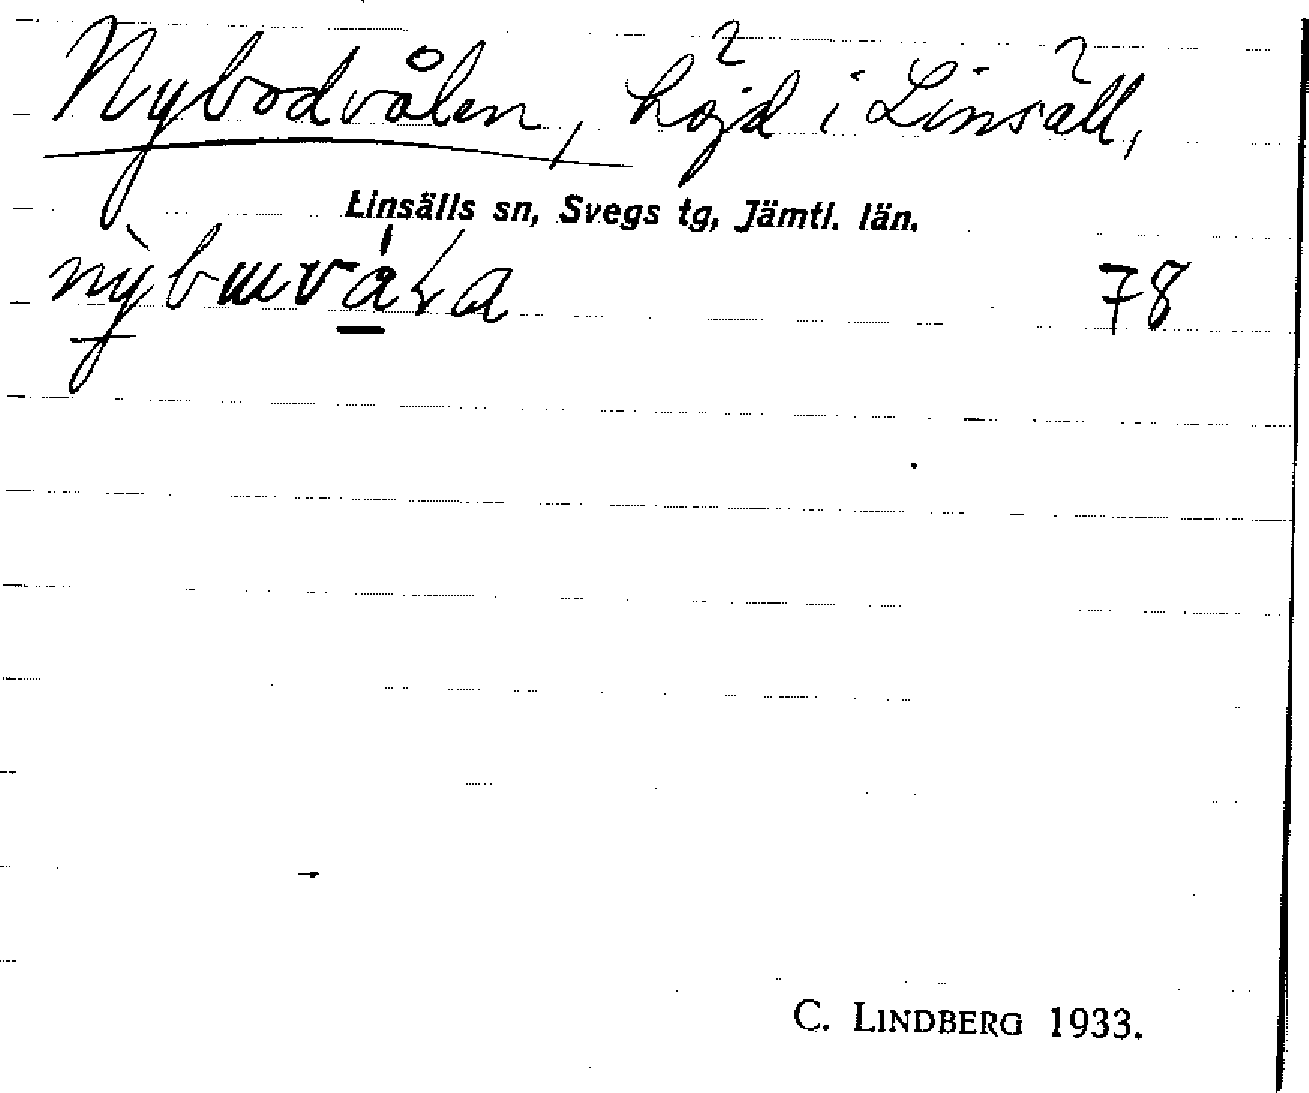 Nybodvålen, höjd i Linsäll,
Linsälls sn, Svegs tg, Jämtl. län.
78
C. LINDBERG 1933.